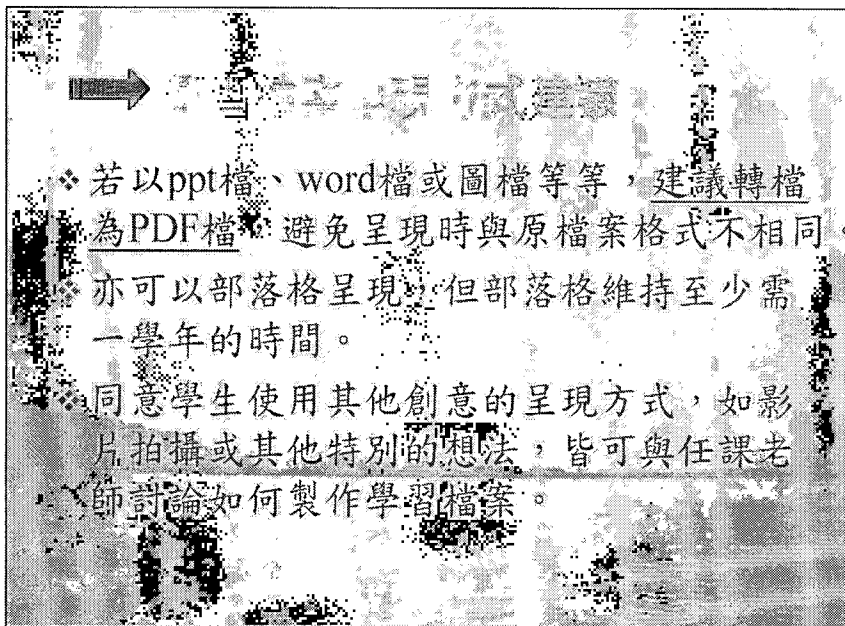 建議
❖ 若以ppt檔、word檔或圖檔等等，建議轉檔
為PDF檔，避免呈現時與原檔案格式不相同。
❖ 亦可以部落格呈現，但部落格維持至少需
一學年的時間。
❖ 同意學生使用其他創意的呈現方式，如影
片拍攝或其他特別的想法，皆可與任課老
師討論如何製作學習檔案。